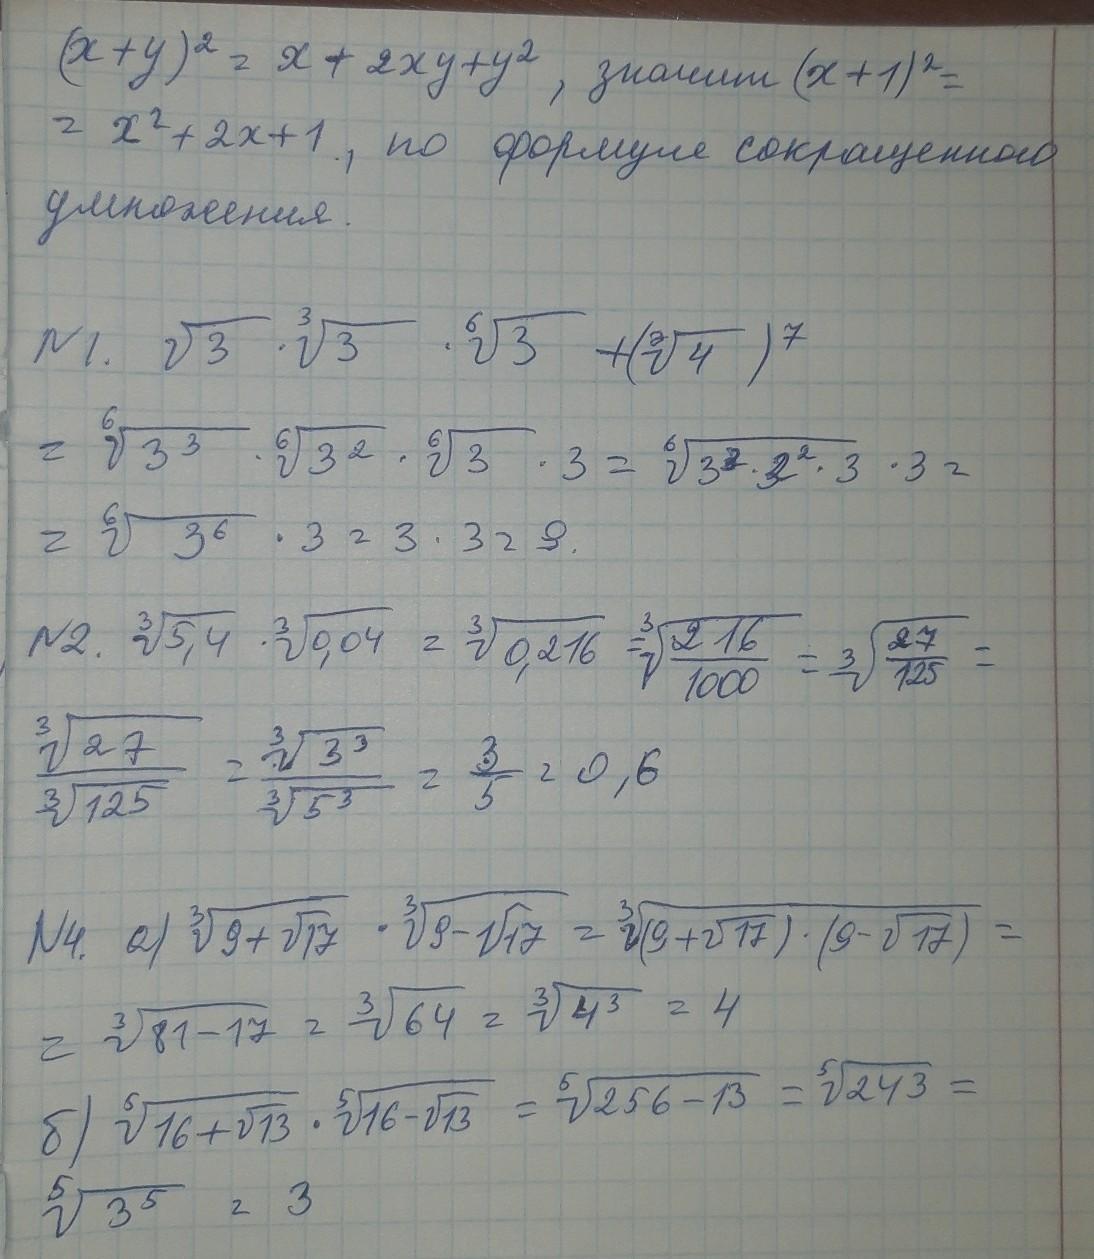 (x+y)² = x + 2xy+y², значит (x+1)² =
= x² + 2x+1, по формуле сокращенного
умножения.
N1. √3 · ∛3 · ⁶√3 + (⁷√4)⁷
= ⁶√3³ · ⁶√3² · ⁶√3 · 3 = ⁶√(3³ · 3² · 3) · 3 =
= ⁶√3⁶ · 3 = 3 · 3 = 9.
N2. ∛5,4 · ∛0,04 = ∛0,216 = ∛(216/1000) = ∛(27/125) =
∛27/∛125 = ∛3³/∛5³ = 3/5 = 0,6
N4. а) ∛(9+√17) · ∛(9-√17) = ∛((9+√17) · (9-√17)) =
= ∛(81-17) = ∛64 = ∛4³ = 4
б) ⁵√(16+√13) · ⁵√(16-√13) = ⁵√(256-13) = ⁵√243 =
⁵√3⁵ = 3